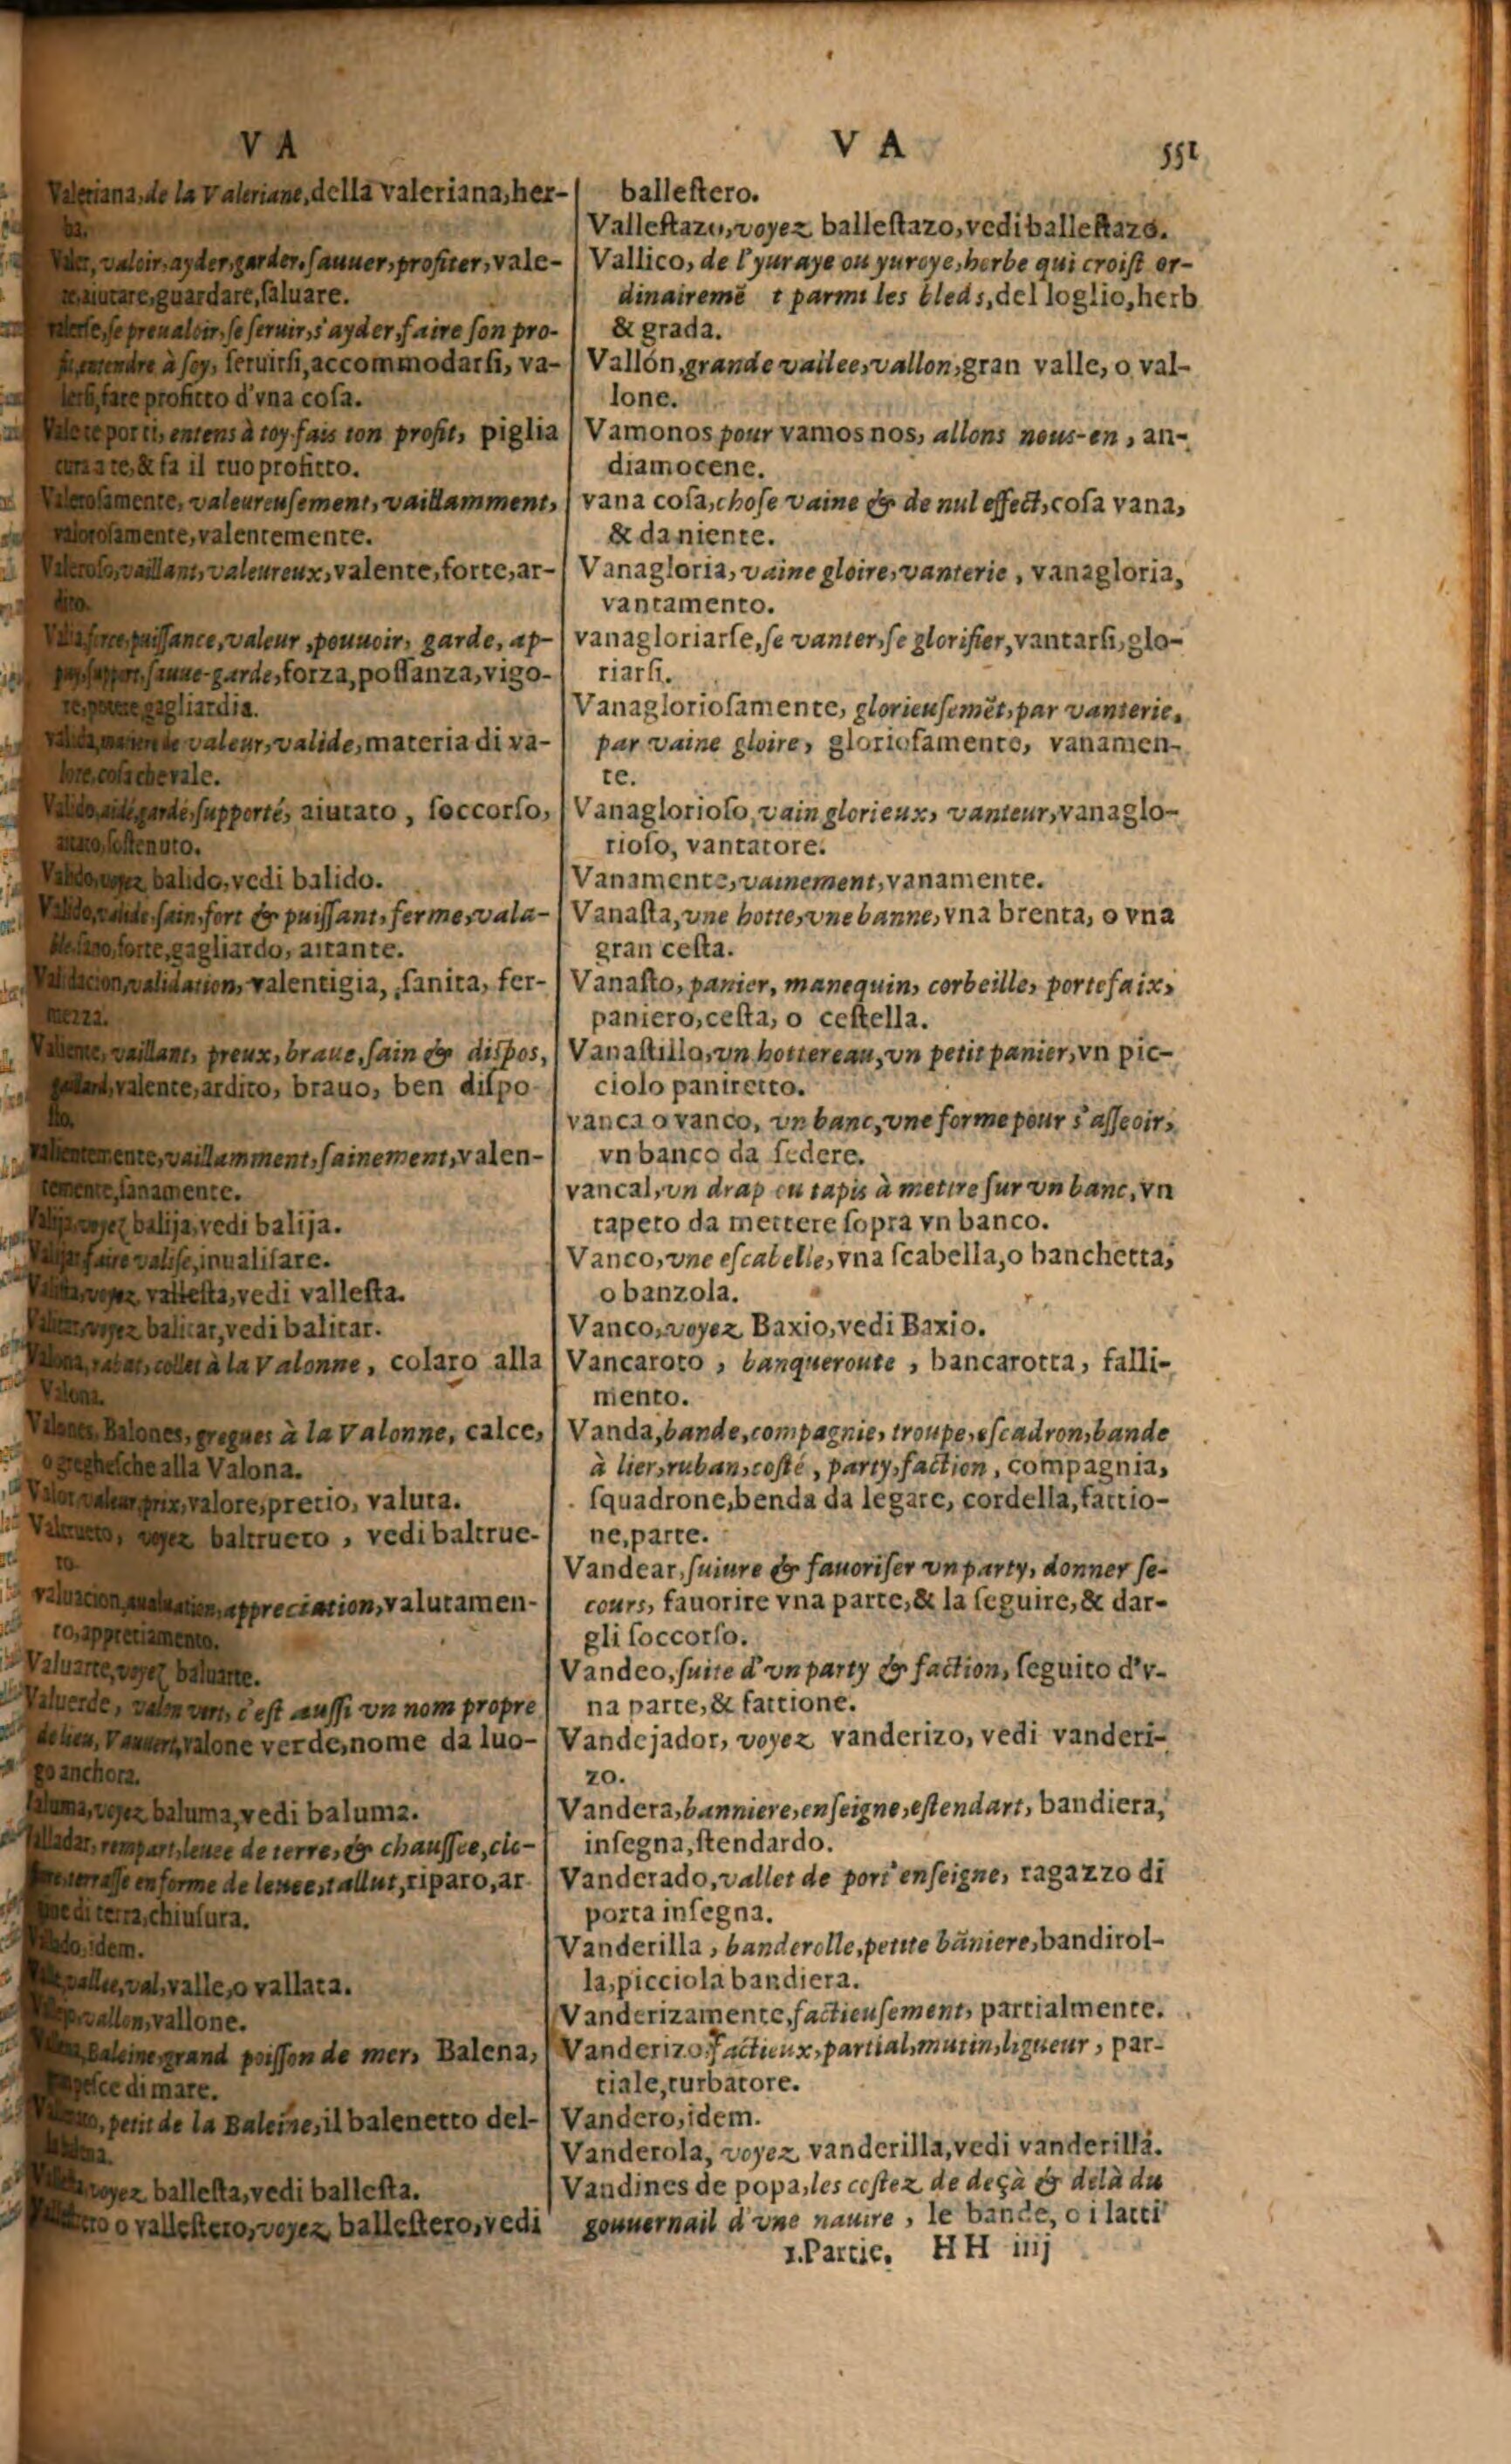 V A
Valeriana, de la Valeriane, della valeriana, her-
ba.
Valer, valoir, ayder, garder, ſauuer, profiter, vale-
re, aiutare, guardare, ſaluare.
valerſe, ſe preualoir, ſe ſeruir, s'ayder, faire ſon pro-
fit, entendre à ſoy, ſeruirſi, accommodarſi, va-
lerſi, fare profitto d'vna coſa.
Valete por ti, entens à toy, fais ton profit, piglia
cura a te, & fa il tuo profitto.
Valeroſamente, valeureuſement, vaillamment,
valoroſamente, valentemente.
Valeroſo, vaillant, valeureux, valente, forte, ar-
dito.
Valia, force, puiſſance, valeur, pouuoir, garde, ap-
puy, ſupport, ſauue-garde, forza, poſſanza, vigo-
re, potere, gagliardia.
valeur, valide, materia di va-
lore, coſa che vale.
Valido, aidé, gardé, ſupporté, aiutato, ſoccorſo,
aitato, ſoſtenuto.
Valido, voyez balido, vedi balido.
Valido, valide, ſain, fort & puiſſant, ferme, vala-
ble, ſano, forte, gagliardo, aitante.
Validacion, validation, valentigia, ſanita, fer-
mezza.
Valiente, vaillant, preux, braue, ſain & diſpos,
gaillard, valente, ardito, brauo, ben diſpo-
ſto.
valientemente, vaillamment, ſainement, valen-
temente, ſanamente.
Valija, voyez balija, vedi balija.
faire valiſe, inualiſare.
voyez valleſta, vedi valleſta.
Valitar, voyez balitar, vedi balitar.
Valona, rabat, collet à la Valonne, colaro alla
Valona.
Valones, Balones, gregues à la Valonne, calce,
o gregheſche alla Valona.
Valor, valeur, prix, valore, pretio, valuta.
Valtrueto, voyez baltrueto, vedi baltrue-
to.
valuacion, aualuation, appreciation, valutamen-
to, appretiamento.
Valuarte, voyez baluarte.
Valuerde, valon vert, c'eſt auſſi vn nom propre
de lieu, Vauuert, valone verde, nome da luo-
go anchora.
Valuma, voyez baluma, vedi baluma.
Valladar, rempart, leuee de terre, & chauſſee, clo-
terraſſe en forme de leuee, tallut, riparo, ar
gine di terra, chiuſura.
Vallado, idem.
Valle, vallee, val, valle, o vallata.
vallon, vallone.
Baleine, grand poiſſon de mer, Balena,
peſce di mare.
petit de la Baleine, il balenetto del-
la balena.
voyez balleſta, vedi balleſta.
o valleſtero, voyez balleſtero, vedi
V A 551
balleſtero.
Valleſtazo, voyez balleſtazo, vedi balleſtazo.
Vallico, de l'yuraye ou yuroye, herbe qui croiſt or-
dinairemẽ t parmi les bleds, del loglio, herb
& grada.
Vallón, grande vallee, vallon, gran valle, o val-
lone.
Vamonos pour vamos nos, allons nous-en, an-
diamocene.
vana coſa, choſe vaine & de nul effect, coſa vana,
& da niente.
Vanagloria, vaine gloire, vanterie, vanagloria,
vantamento.
vanagloriarſe, ſe vanter, ſe glorifier, vantarſi, glo-
riarſi.
Vanaglorioſamente, glorieuſemẽt, par vanterie,
par vaine gloire, glorioſamente, vanamen-
te.
Vanaglorioſo, vain glorieux, vanteur, vanaglo-
rioſo, vantatore.
Vanamente, vainement, vanamente.
Vanaſta, vne hotte, vne banne, vna brenta, o vna
gran ceſta.
Vanaſto, panier, manequin, corbeille, portefaix,
paniero, ceſta, o ceſtella.
Vanaſtillo, vn hottereau, vn petit panier, vn pic-
ciolo paniretto.
vanca o vanco, vn banc, vne forme pour s'aſſeoir,
vn banco da ſedere.
vancal, vn drap ou tapis à mettre ſur vn banc, vn
tapeto da mettere ſopra vn banco.
Vanco, vne eſcabelle, vna ſcabella, o banchetta,
o banzola.
Vanco, voyez Baxio, vedi Baxio.
Vancaroto, banqueroute, bancarotta, falli-
mento.
Vanda, bande, compagnie, troupe, eſcadron, bande
à lier, ruban, coſté, party, faction, compagnia,
ſquadrone, benda da legare, cordella, fattio-
ne, parte.
Vandear, ſuiure & fauoriſer vn party, donner ſe-
cours, fauorire vna parte, & la ſeguire, & dar-
gli ſoccorſo.
Vandeo, ſuite d'vn party & faction, ſeguito d'v-
na parte, & fattione.
Vandejador, voyez vanderizo, vedi vanderi-
zo.
Vandera, banniere, enſeigne, eſtendart, bandiera,
inſegna, ſtendardo.
Vanderado, vallet de port'enſeigne, ragazzo di
porta inſegna.
Vanderilla, banderolle, petite bãniere, bandirol-
la, picciola bandiera.
Vanderizamente, factieuſement, partialmente.
Vanderizo, factieux, partial, mutin, ligueur, par-
tiale, turbatore.
Vandero, idem.
Vanderola, voyez vanderilla, vedi vanderilla.
Vandines de popa, les coſtez de deçà & delà du
gouuernail d'vne nauire, le bande, o i latti
1. Partie. HH iiij